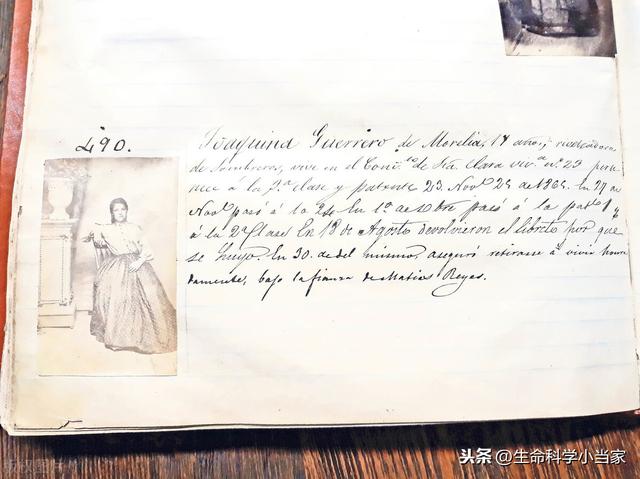 490.
Joaquina Guerrero de Morelia, 17 años,
de Sombreros, vive en el Conv.to de Sta. Clara viv.a n.o 29 perte
nece á la 2.a clase y patente 23. Nov.e 24 de 1865. En 27 de
Nov.e pasó á la En 1.o de pasó á la
á la 2.a Clase En 18 de Agosto devolvieron el libreto por que
se huyo. En 30. de del mismo, aseguró retirarse á vivir honra
damente, bajo la fianza de Matias Reyes.
头条 @生命科学小当家